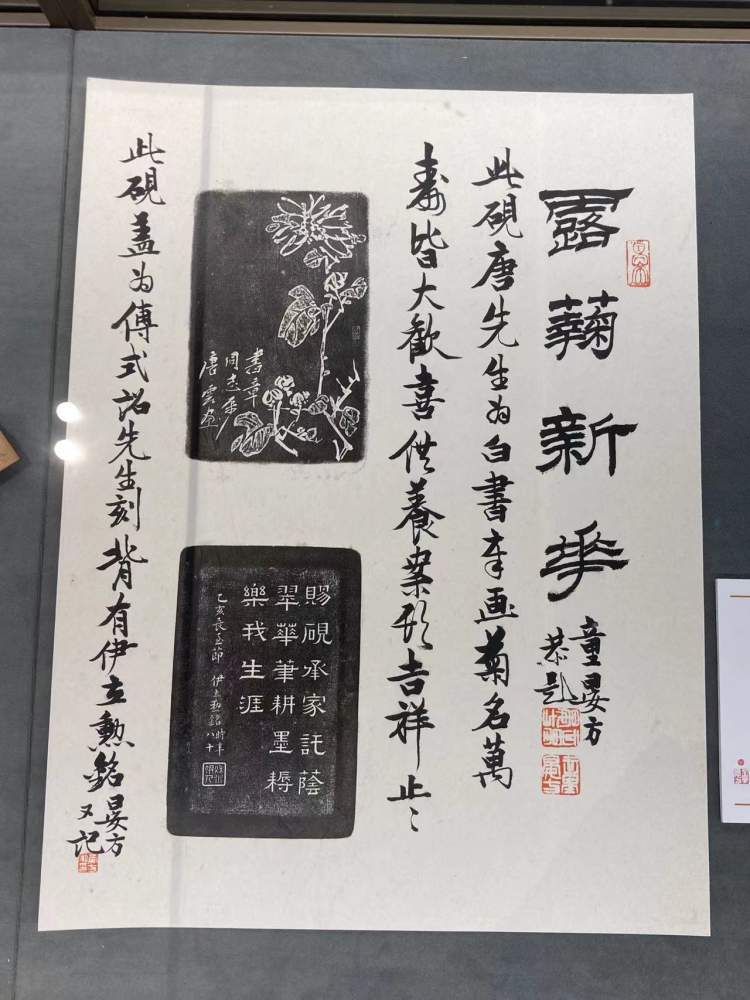 露蘜新華
童晏方
恭題
此硯唐先生為白書章画菊名萬
壽皆大歡喜供養案頭吉祥止止
書章
同志属
唐雲画
賜硯承家託蔭
翠華筆耕墨耨
樂我生涯
乙亥長至節 伊立勲銘 時年八十
此硯蓋为傅式詔先生刻背有伊立勲銘晏方
又记